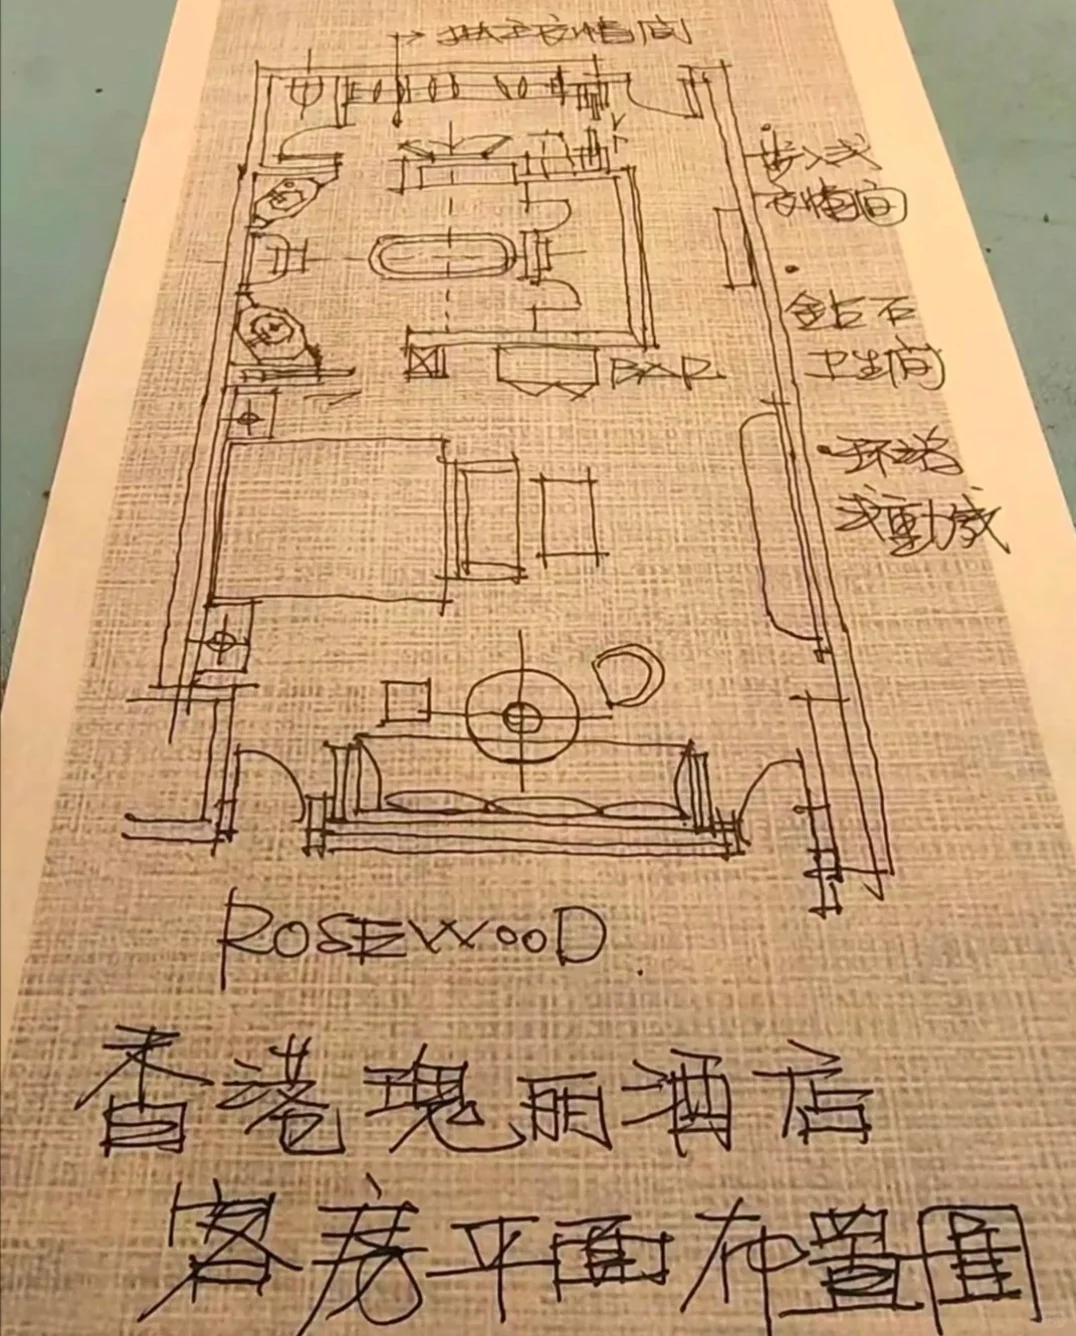 步入式
衣帽间
钻石
卫生间
环游
式動感
BAR
ROSEWOOD
香港瑰丽酒店
客房平面布置图